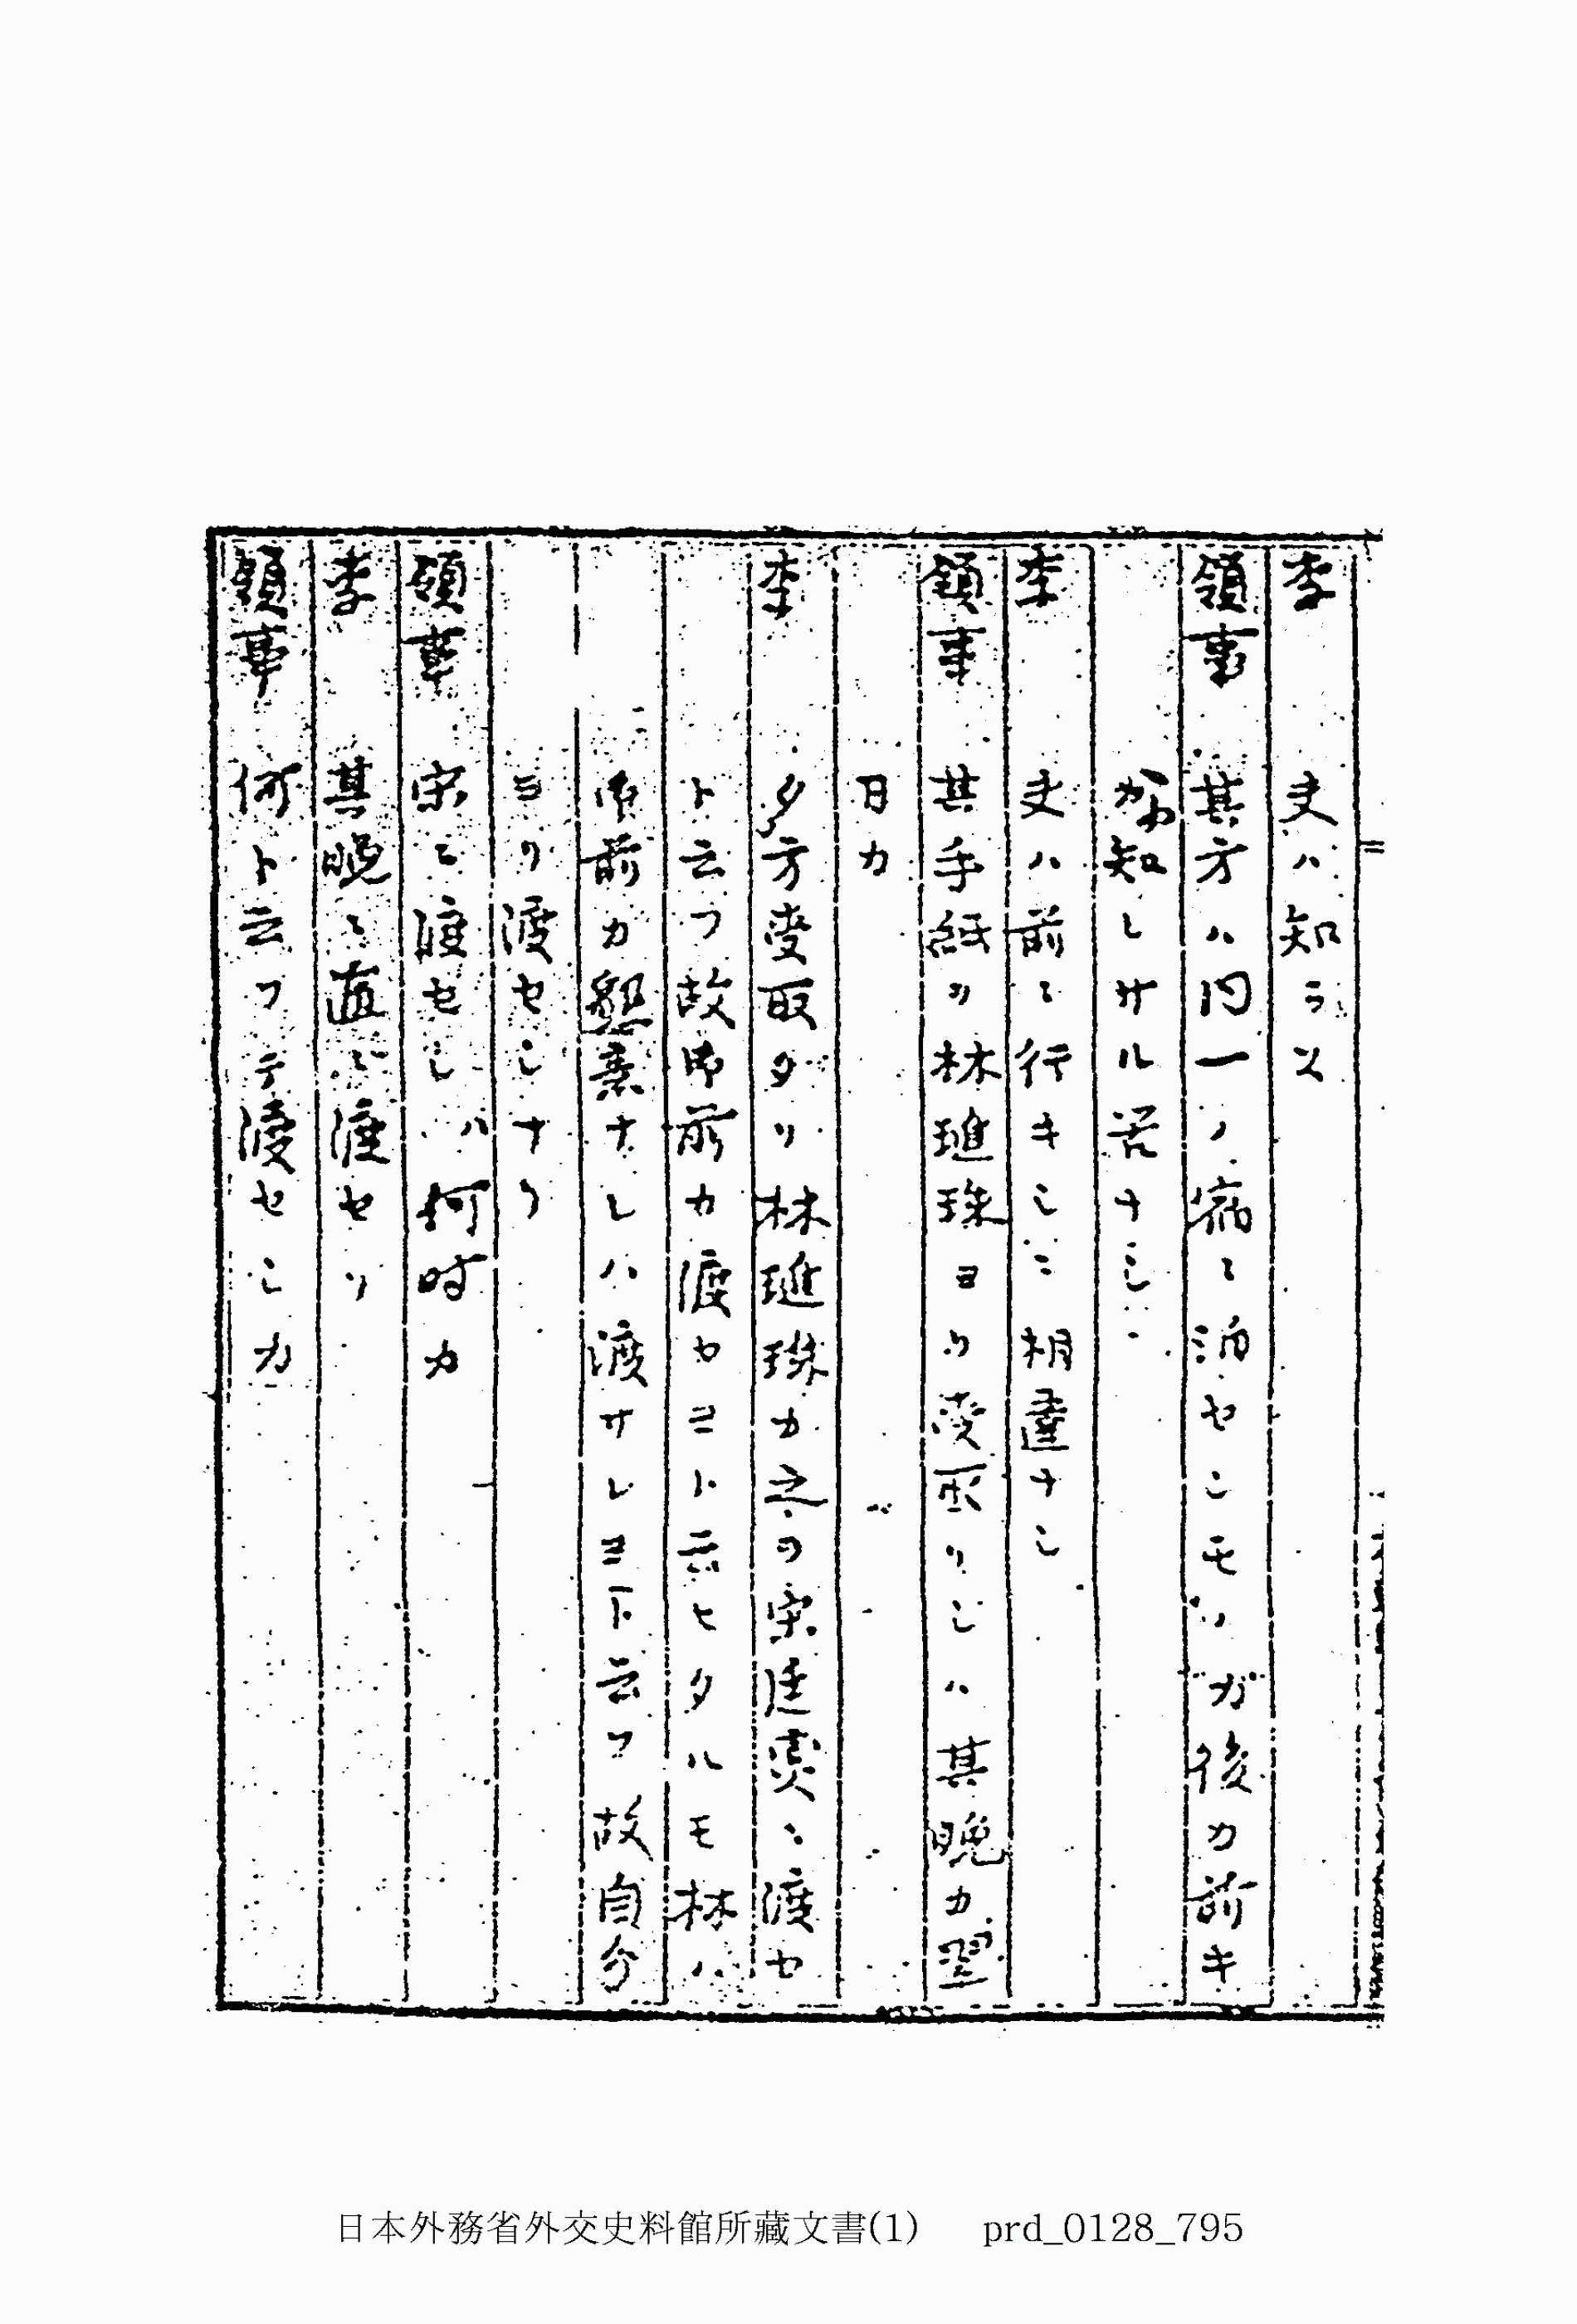 李 夫ハ知ラス
領事 其方ハ同一ノ病ニ泊セシモノガ後カ前キ
カヲ知レサル筈ナシ
李 夫ハ前ニ行キシニ相違ナシ
領事 其手紙ヲ林璡珠ヨリ受取リシハ其晩カ翌
日カ
李 夕方受取タリ林璡珠カ之ヲ宋廷奭ニ渡セ
ト云フ故御前カ渡セヨト云ヒタルモ林ハ
御前カ懇意ナレハ渡サレヨト云フ故自分
ヨリ渡セシナリ
領事 宋ニ渡セシハ何時カ
李 其晩ニ直ニ渡セリ
領事 何ト云フテ渡セシカ
日本外務省外交史料館所藏文書(1) prd_0128_795